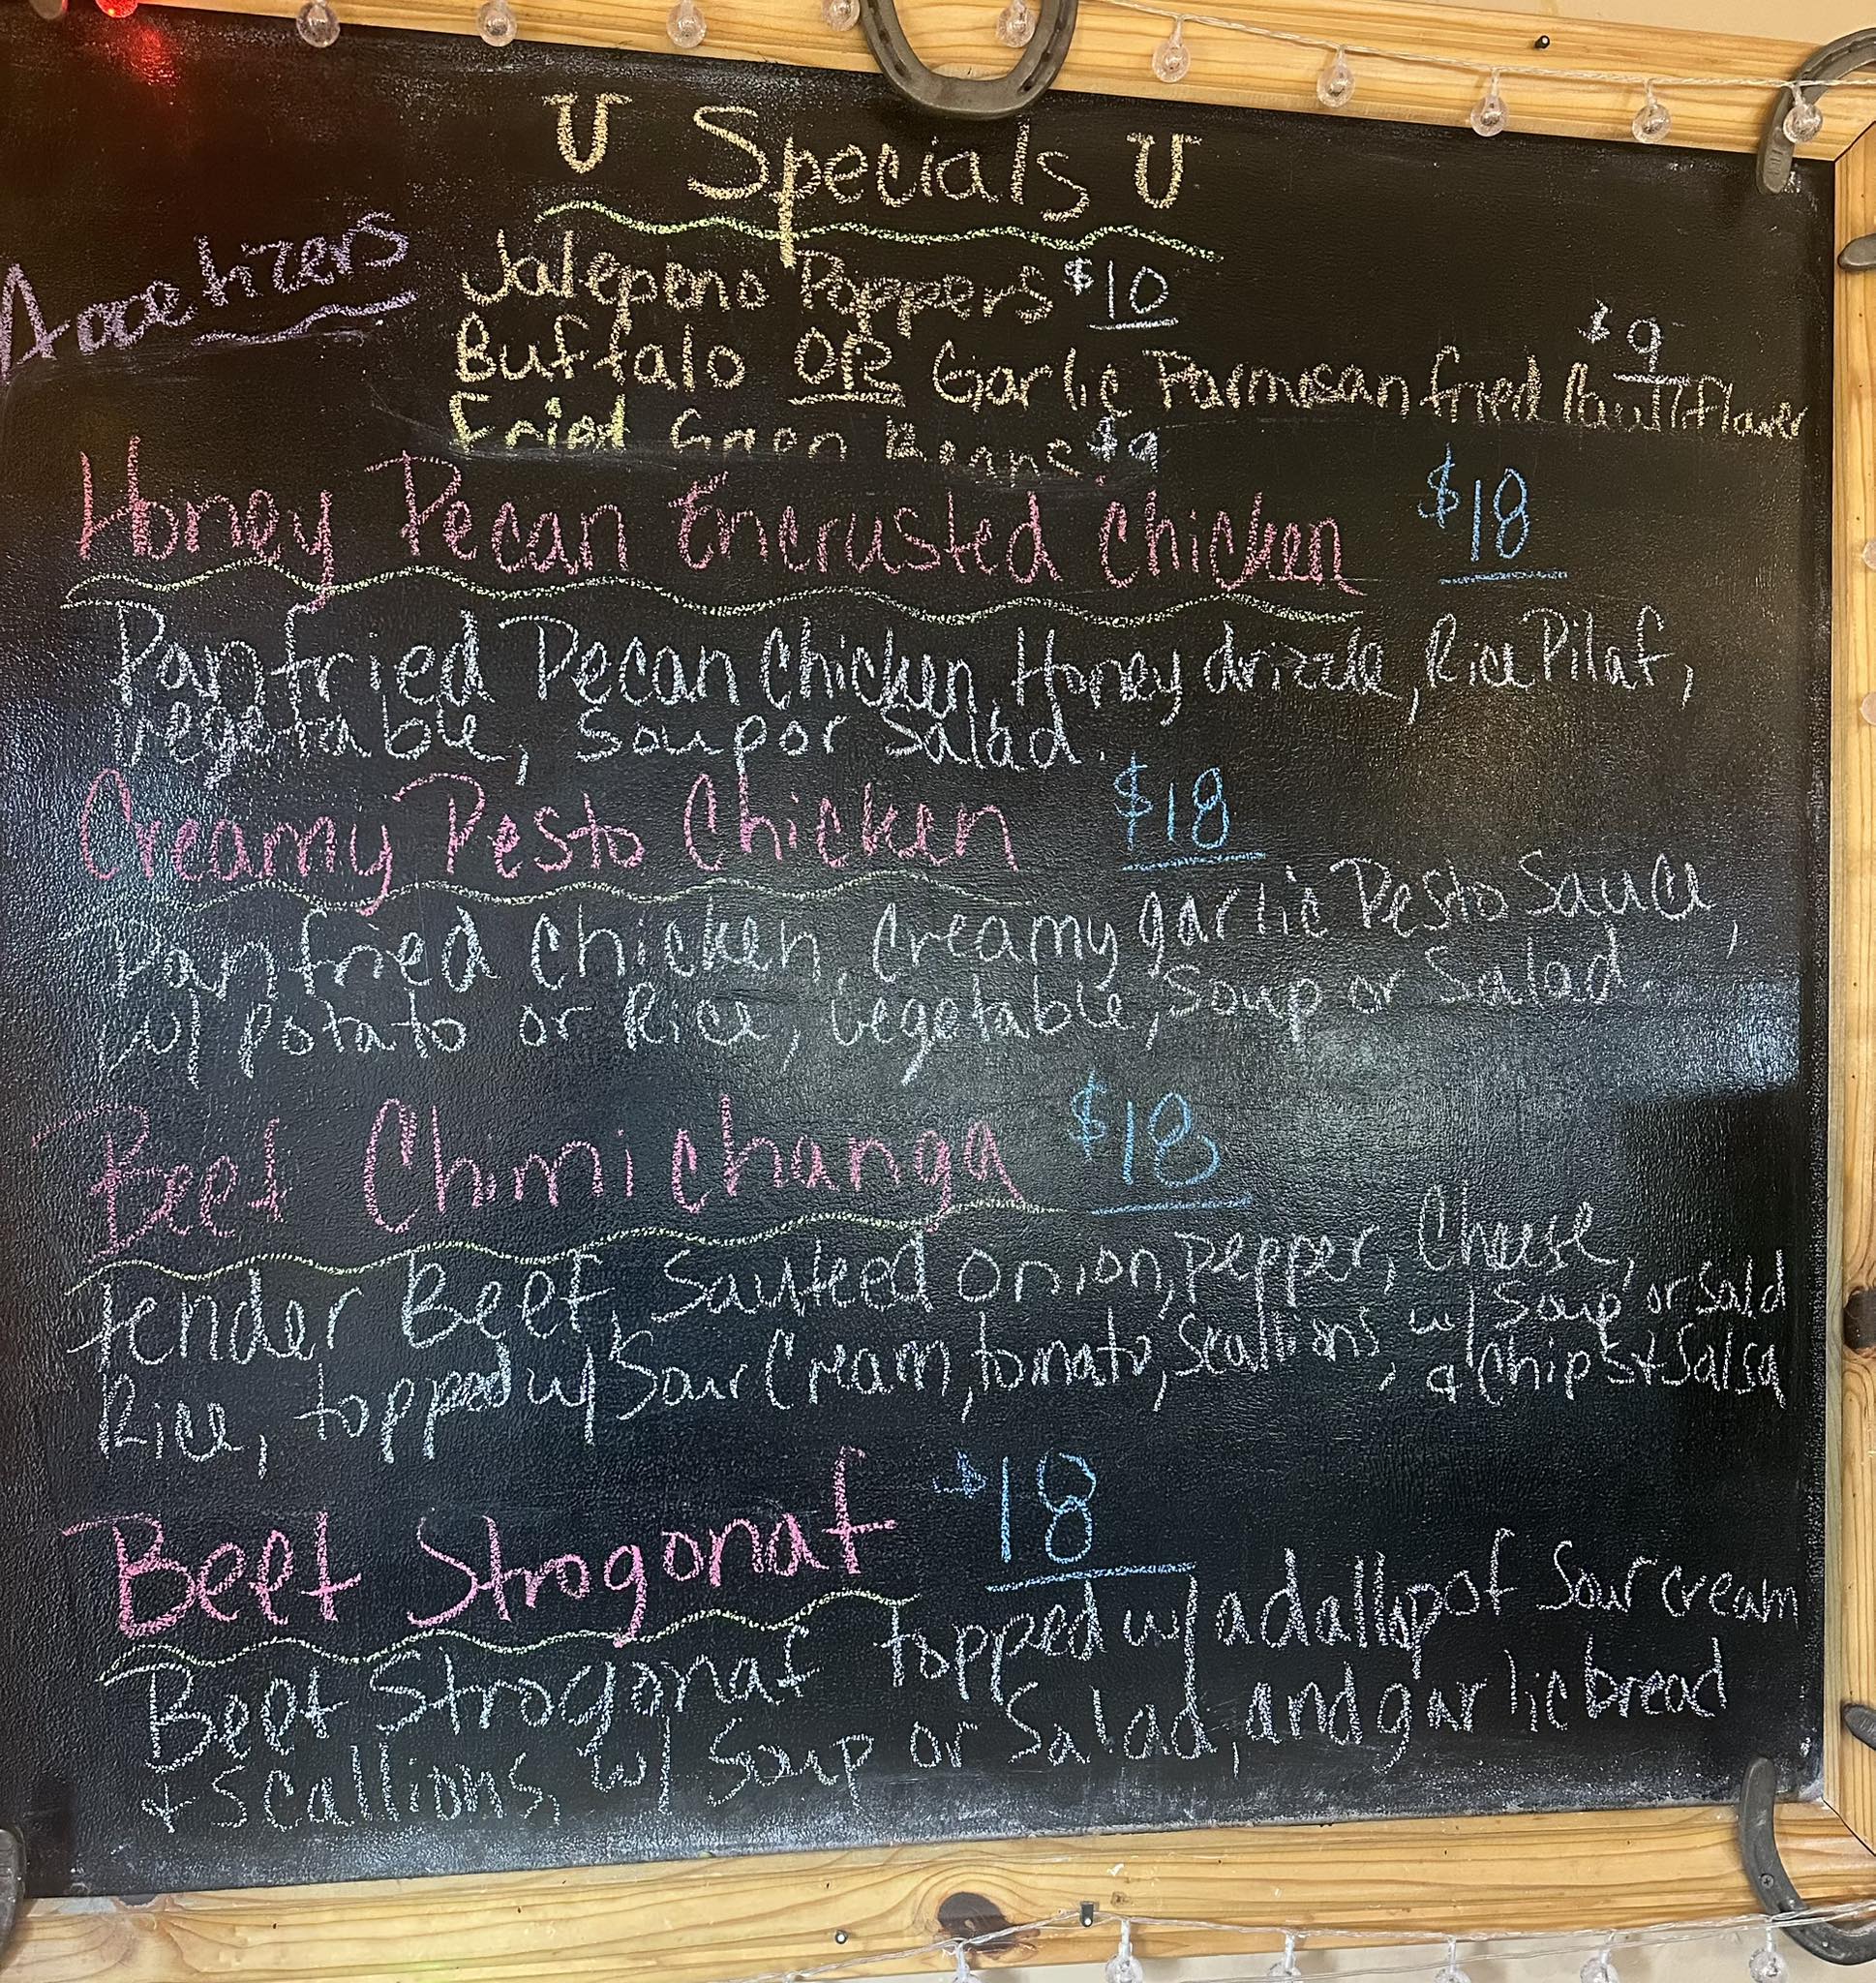 Specials
Appetizers
Jalepeno Poppers $10
Buffalo OR Garlic Parmesan fried Cauliflower $9
Fried Green Beans $9
Honey Pecan Encrusted Chicken $18
Panfried Pecan Chicken, Honey drizzle, Rice Pilaf,
Vegetable, Soup or Salad.
Creamy Pesto Chicken $18
Panfried Chicken, Creamy garlic Pesto Sauce,
w/ potato or Rice, Vegetable, Soup or Salad
Beef Chimichanga $18
Tender Beef, Sauteed onion, pepper, Cheese,
Rice, topped w/ Sour Cream, tomato, Scallions, w/ Soup or Sald
& Chips & Salsa
Beef Strogonaf $18
Beef Strogonaf topped w/ a dallop of Sour cream
& Scallions, w/ Soup or Salad, and garlic bread